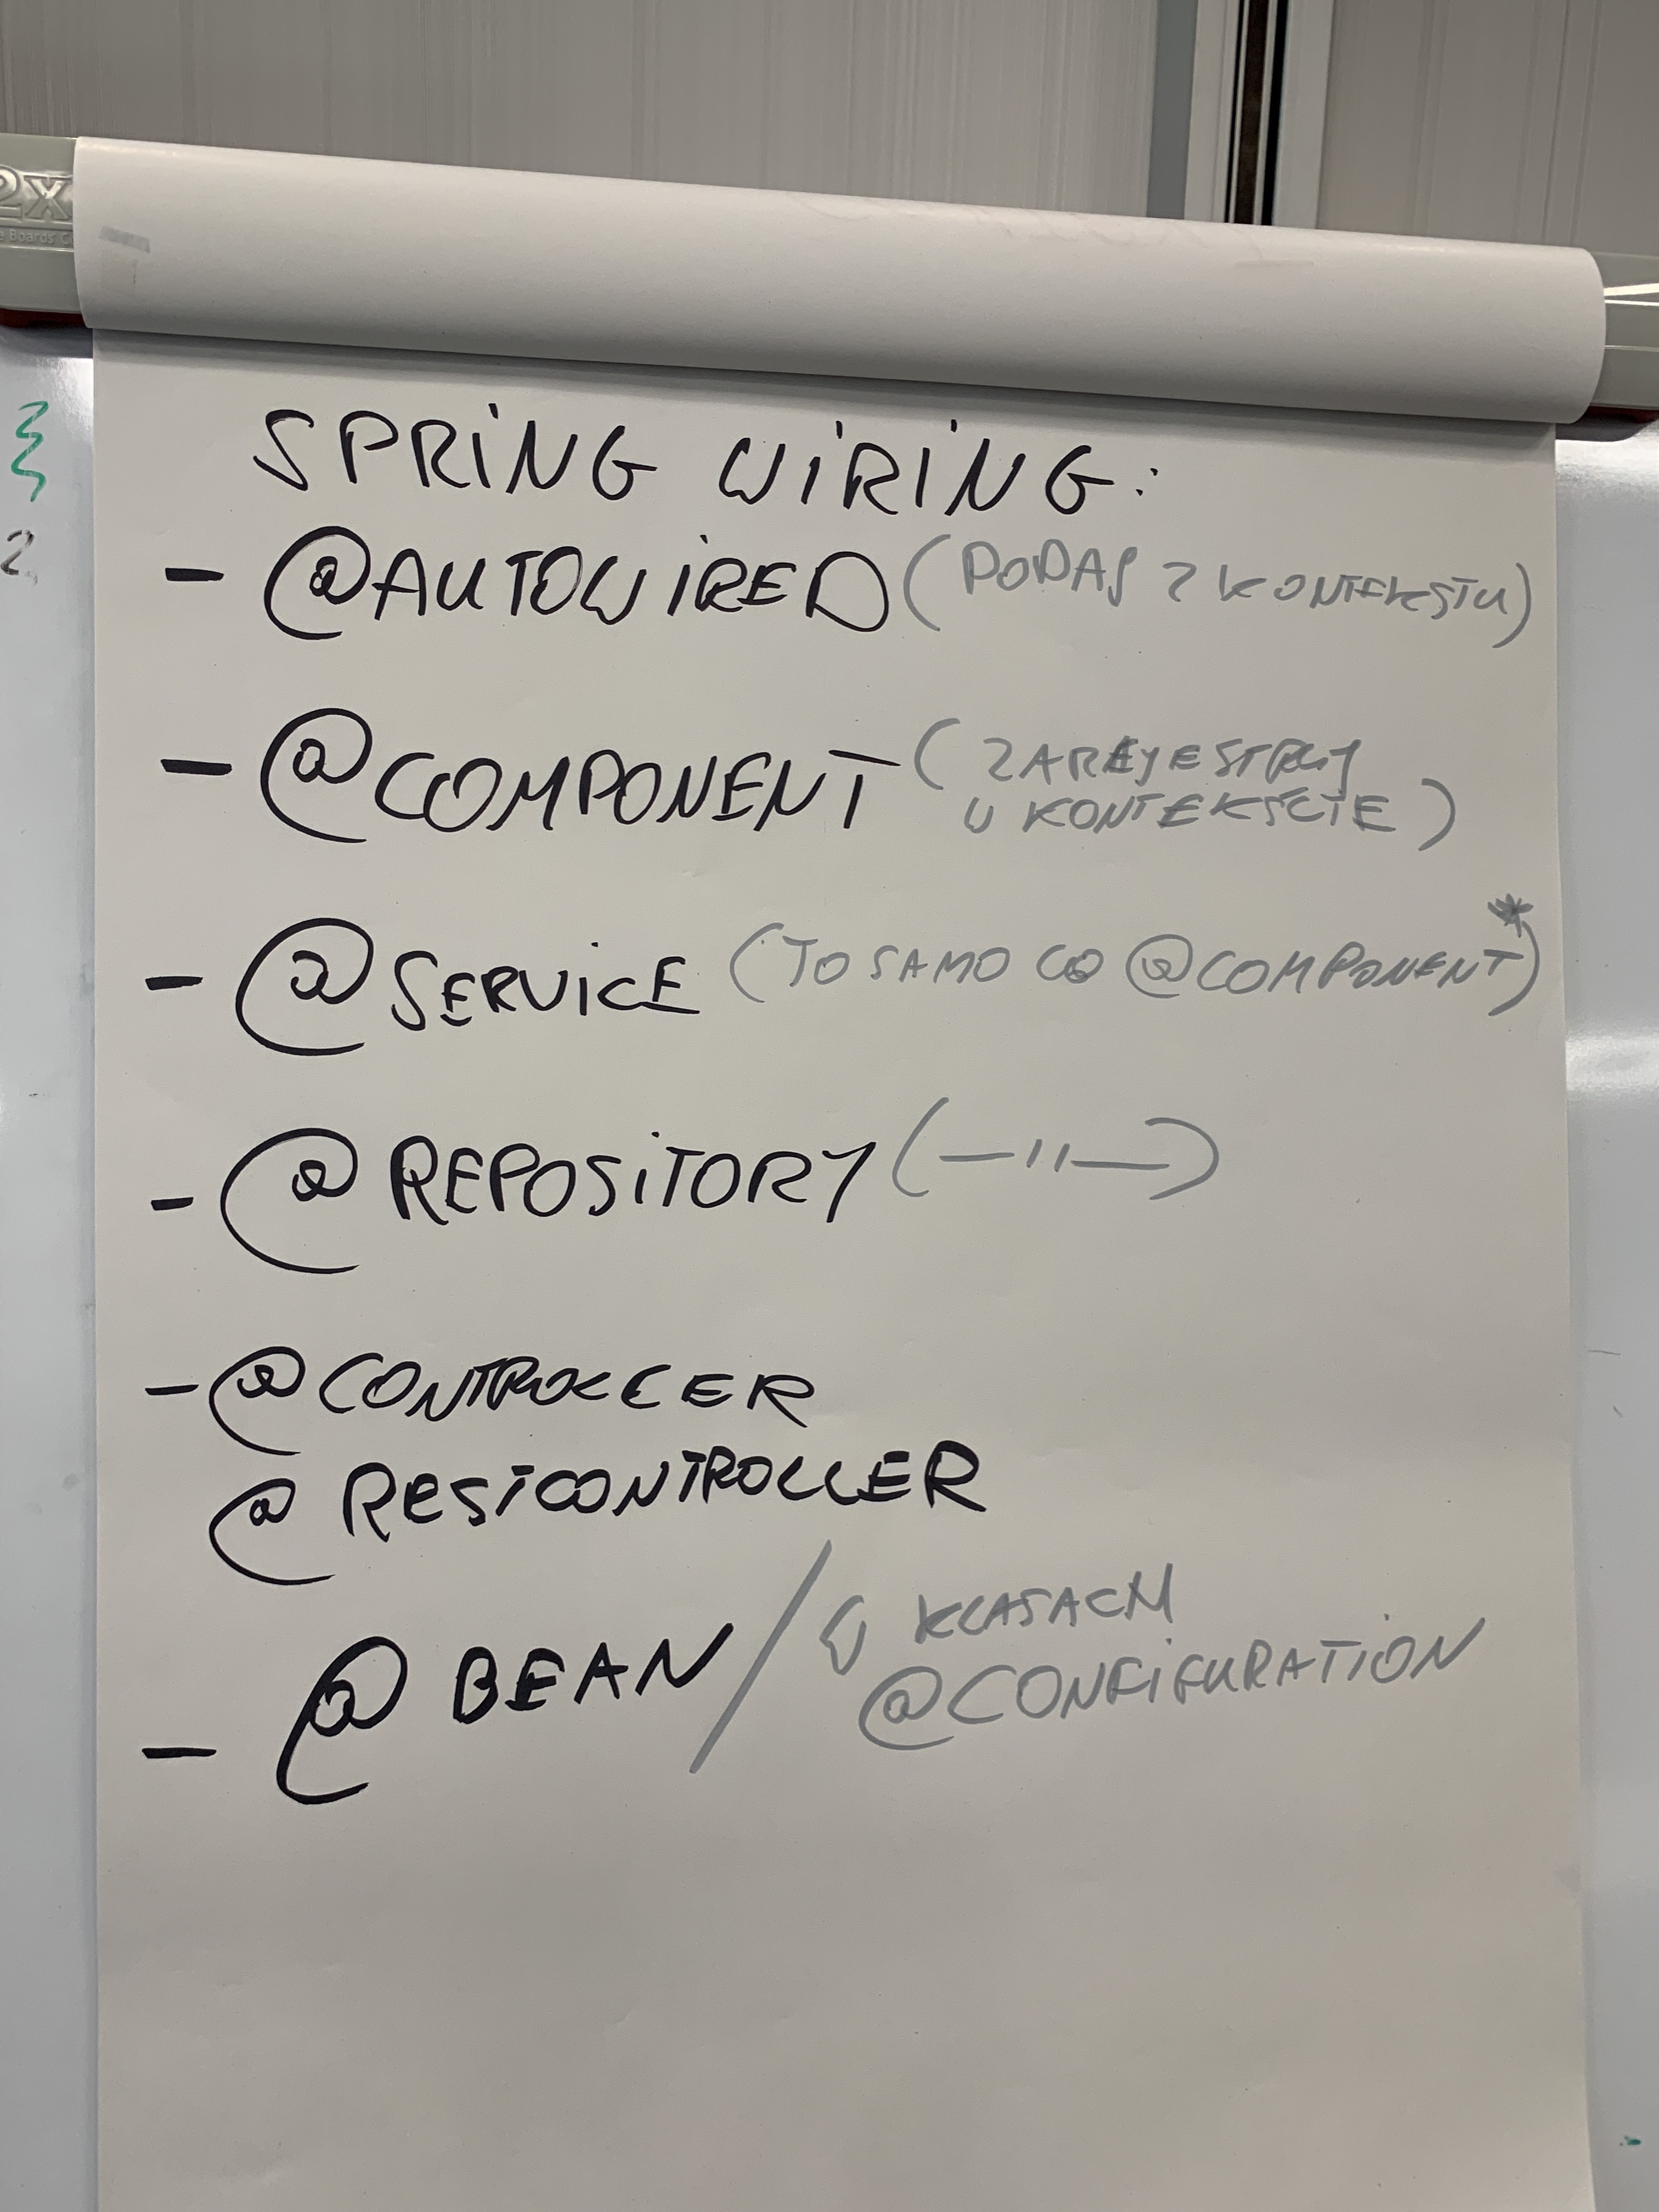 2x
e Boards
SPRING WIRING:
- @AUTOWIRED (PODAJ Z KONTEKSTU)
- @COMPONENT (ZAREJESTRUJ
W KONTEKŚCIE)
- @SERVICE (TO SAMO CO @COMPONENT*)
- @REPOSITORY (—"—)
- @CONTROLLER
@RESTCONTROLLER
- @BEAN / W KLASACH
@CONFIGURATION
2